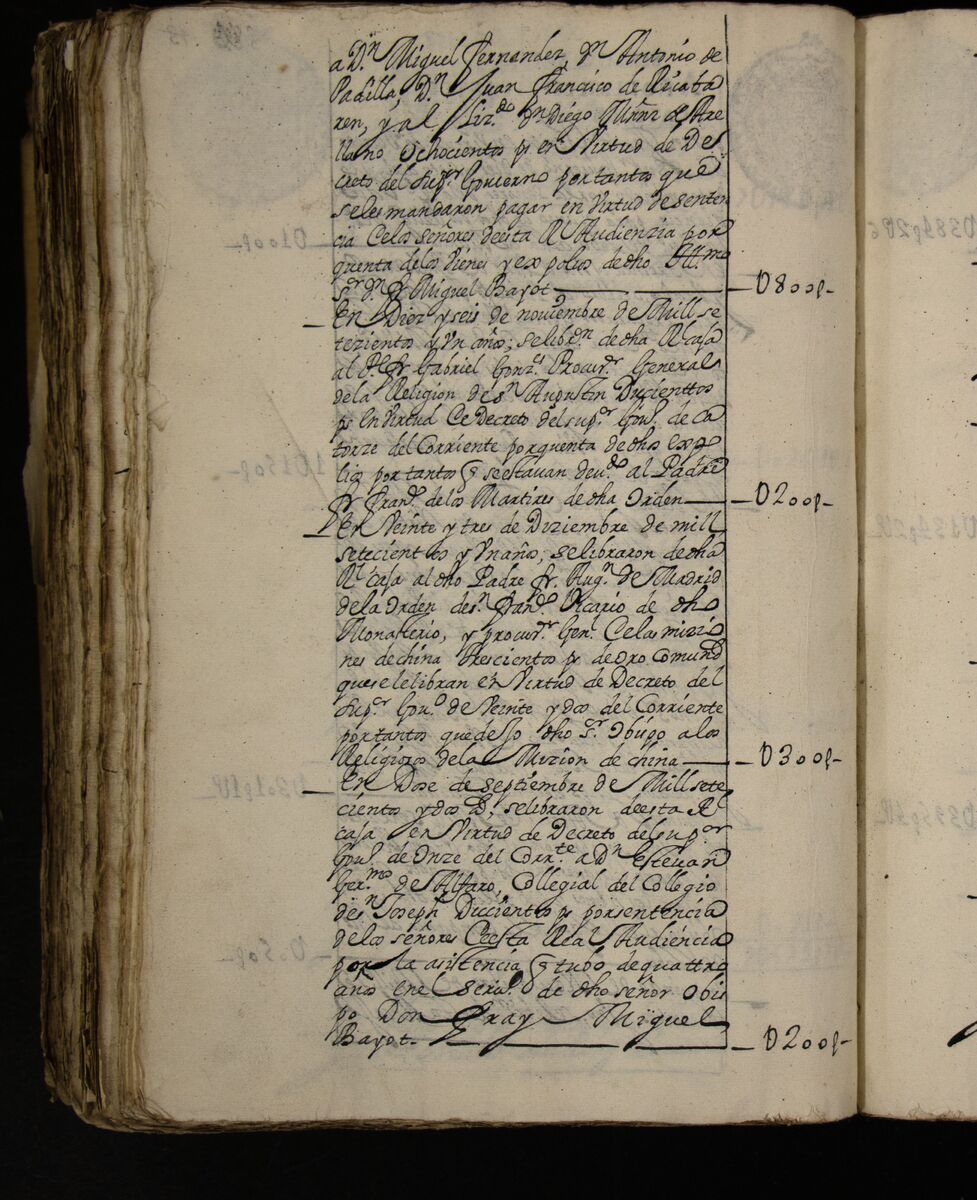 a Dn Miguel Fernandez, dn Antonio de
Padilla, Dn Juan Francisco de Ricata
ren, y al Lizdo dn Diego de Are
llano Ochocientos ps en Virtud de De
creto del Supr Govierno por tantos que
seles mandaron pagar en Virtud de senten
cia Celos señores deesta Rl Audienzia por
quenta delos Vienes y expolios de dho Illmo
Sr dn fr Miguel Bayot — D800p-
En Diez y seis de noviembre de Mill se
tezientos y Vn años; se libn de dha Rl caja
al Pe fr Gabriel Gonzs Procurr General
dela Religion de Sn Augustin Ducienttos
ps En Virtud Ce Decreto del supr Govo de ca
torze del Corriente por quenta de dhos expo
lios por tantos q se estavan deudo al Padre
fr Frando delos Martires de dha Orden — D200p-
En Veinte y tres de Diziembre de mill
setecientos y Vn años; se libraron de dha
Rl caja al dho Padre fr. Augn de Madrid
dela Orden de Sn Frando Vicario de dho
Monasterio, y procurr Genl Celas missio
nes de china Trescientos ps de oro comun
que se le libran en Virtud de Decreto del
Supr Govno de Veinte y dos del Corriente
por tantos que dejo dho sr Obispo a los
Religiosos dela Mizion de china — D300p-
En Dose de septiembre de Mill sete
cientos y dos as. se libraron deesta Rl
caja en Virtud de Decreto del supor
Govo de Onze del Corrte a Dn estevan
Germo de Alfaro, Collegial del Collegio
de Sn Joseph Duccientos ps por sentencia
delos señores Ceesta Real Audiencia
por la asistencia q tubo de quattro
años en el servo de dho señor Obis
po Don Fray Miguel
Bayot — D200p-